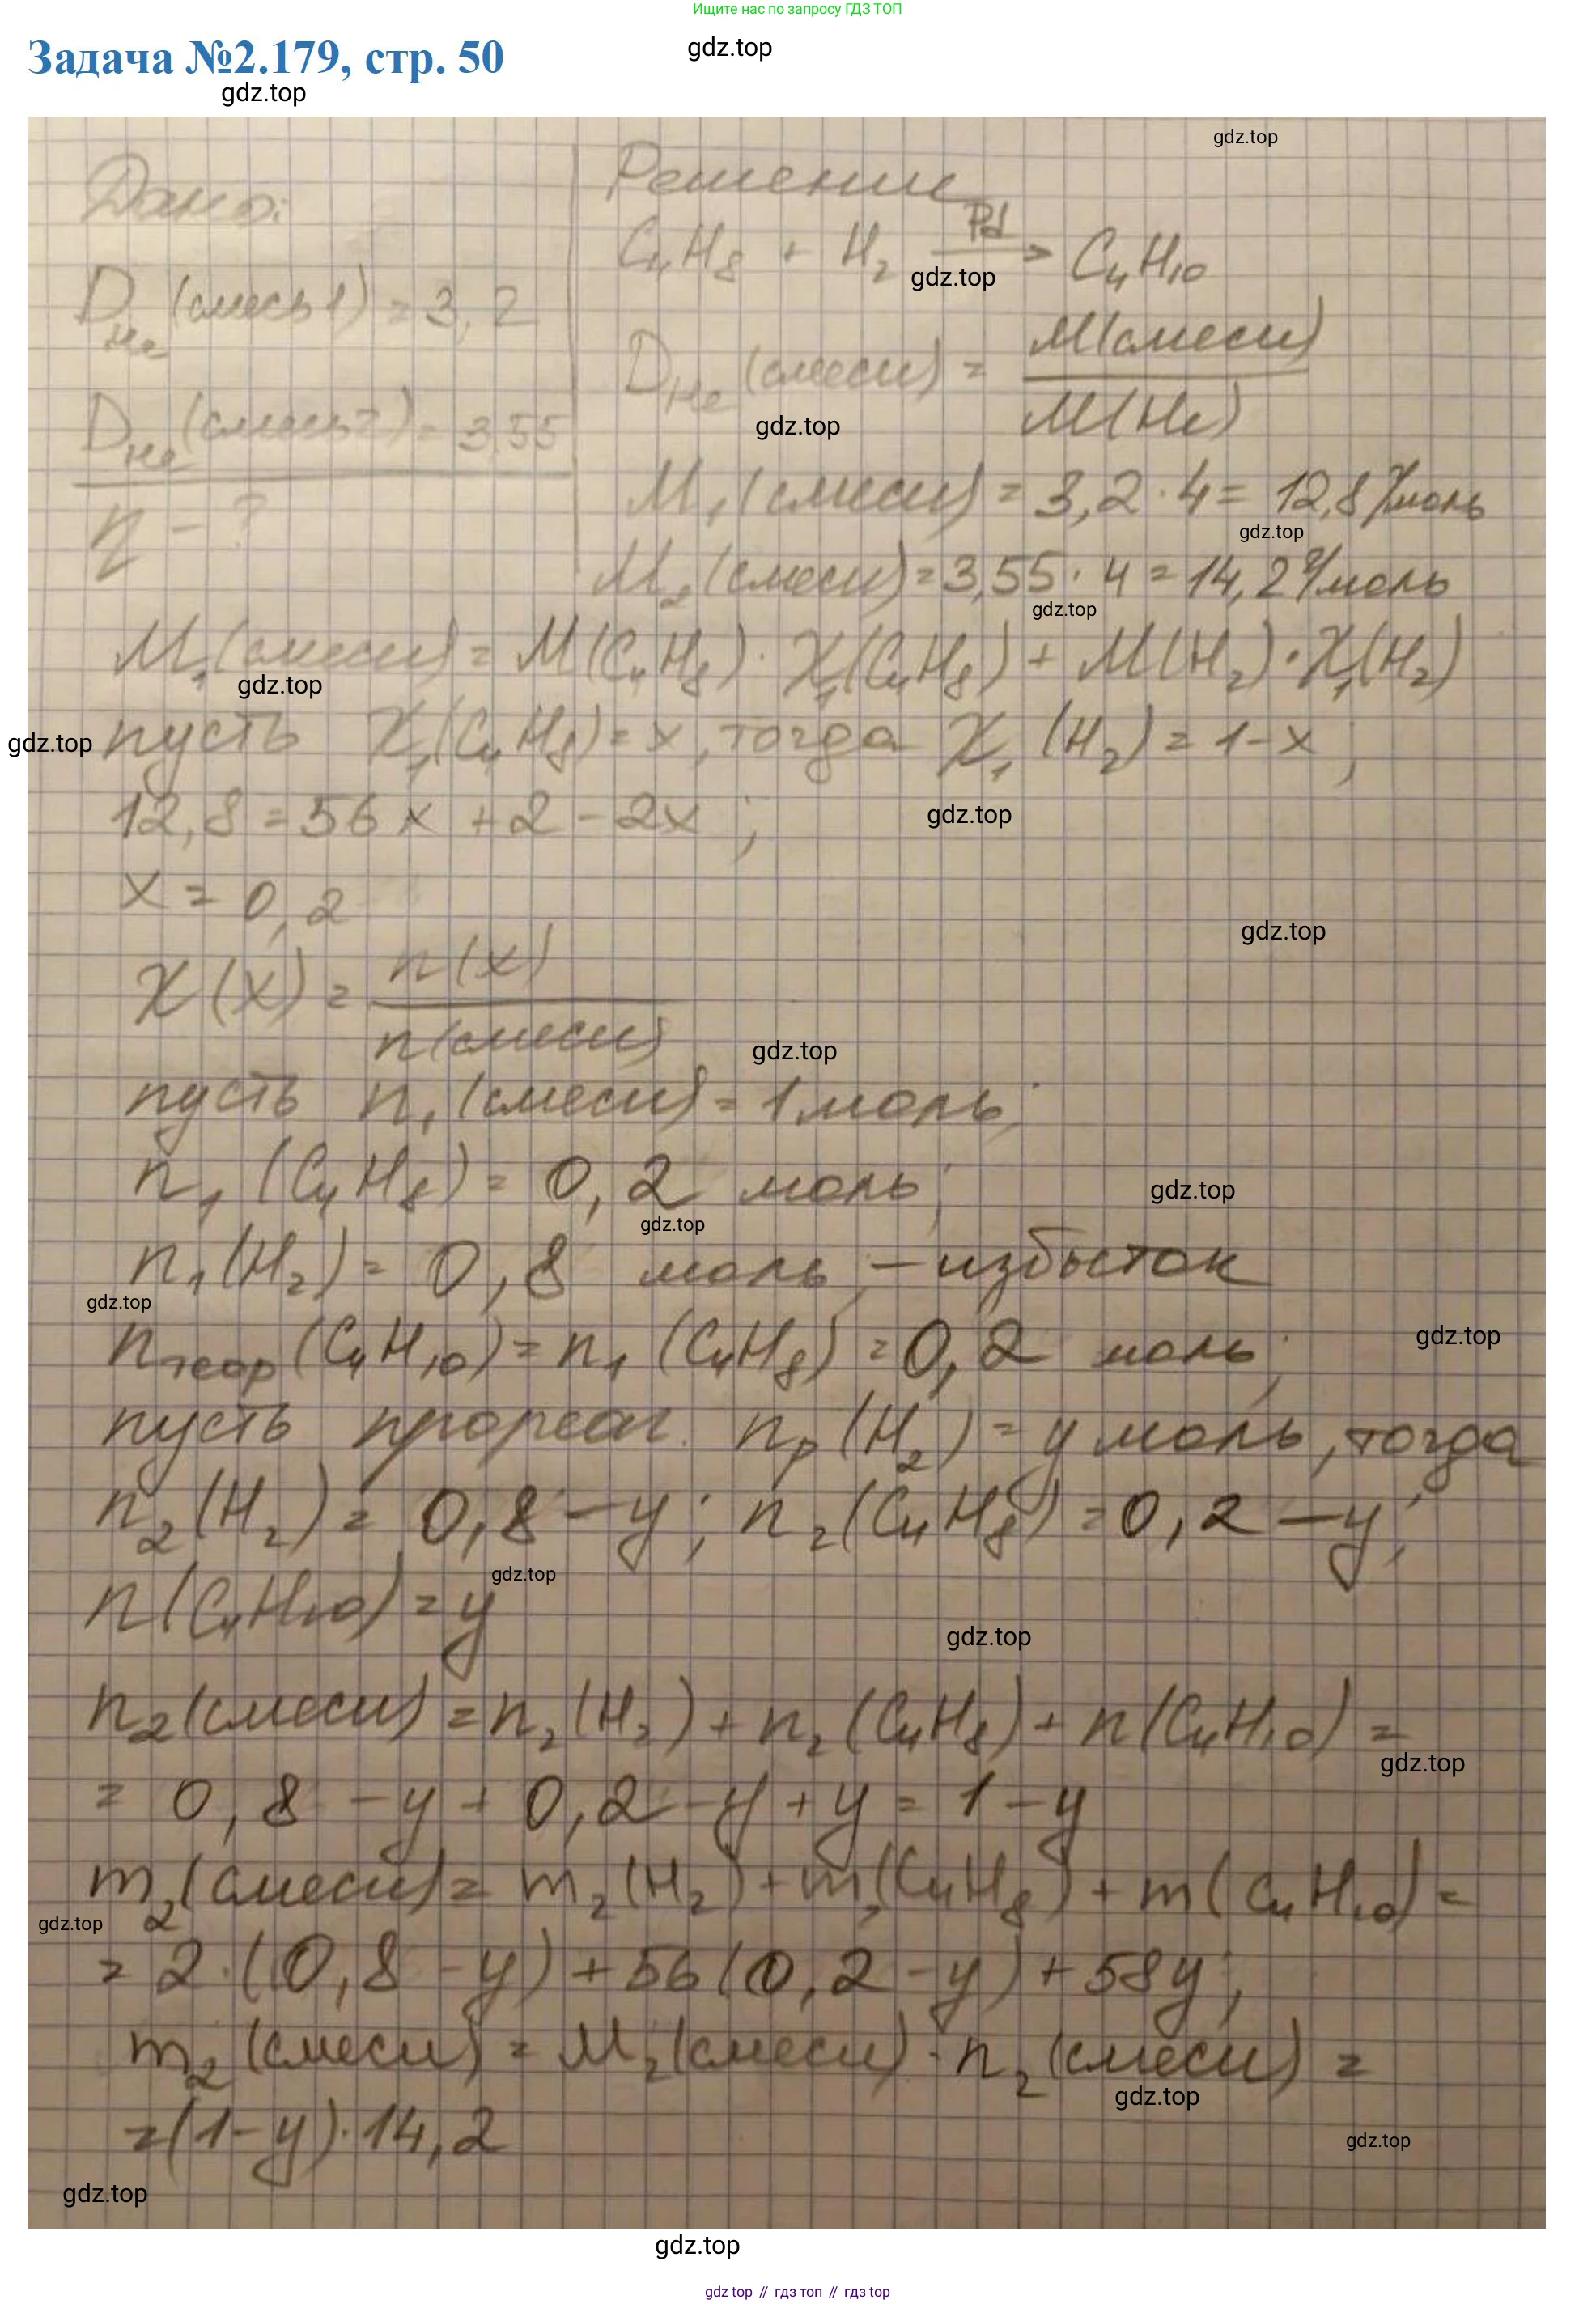 Ищите нас по запросу ГДЗ ТОП
Задача №2.179, стр. 50
gdz.top
gdz.top
gdz.top
Дано:
D He (смесь 1) = 3,2
D He (смесь 2) = 3,55
η - ?
Решение
C₄H₈ + H₂ —Pd→ C₄H₁₀
gdz.top
D He (смеси) = M(смеси) / M(He)
gdz.top
M₁(смеси) = 3,2 · 4 = 12,8 г/моль
gdz.top
M₂(смеси) = 3,55 · 4 = 14,2 г/моль
gdz.top
M₁(смеси) = M(C₄H₈) · χ₁(C₄H₈) + M(H₂) · χ₁(H₂)
gdz.top
gdz.top
пусть χ₁(C₄H₈) = x, тогда χ₁(H₂) = 1 - x;
12,8 = 56x + 2 - 2x;
gdz.top
x = 0,2
gdz.top
χ(X) = n(x) / n(смеси)
gdz.top
пусть n₁(смеси) = 1 моль;
n₁(C₄H₈) = 0,2 моль;
gdz.top
gdz.top
n₁(H₂) = 0,8 моль; - избыток
gdz.top
nтеор(C₄H₁₀) = n₁(C₄H₈) = 0,2 моль;
gdz.top
пусть прореаг. nр(H₂) = y моль, тогда
n₂(H₂) = 0,8 - y; n₂(C₄H₈) = 0,2 - y;
gdz.top
n(C₄H₁₀) = y
gdz.top
n₂(смеси) = n₂(H₂) + n₂(C₄H₈) + n(C₄H₁₀) =
gdz.top
= 0,8 - y + 0,2 - y + y = 1 - y
m₂(смеси) = m₂(H₂) + m₂(C₄H₈) + m(C₄H₁₀) =
gdz.top
= 2·(0,8 - y) + 56(0,2 - y) + 58y;
m₂(смеси) = M₂(смеси) · n₂(смеси) =
gdz.top
= (1 - y) · 14,2
gdz.top
gdz.top
gdz.top
gdz top // гдз топ // гдз top